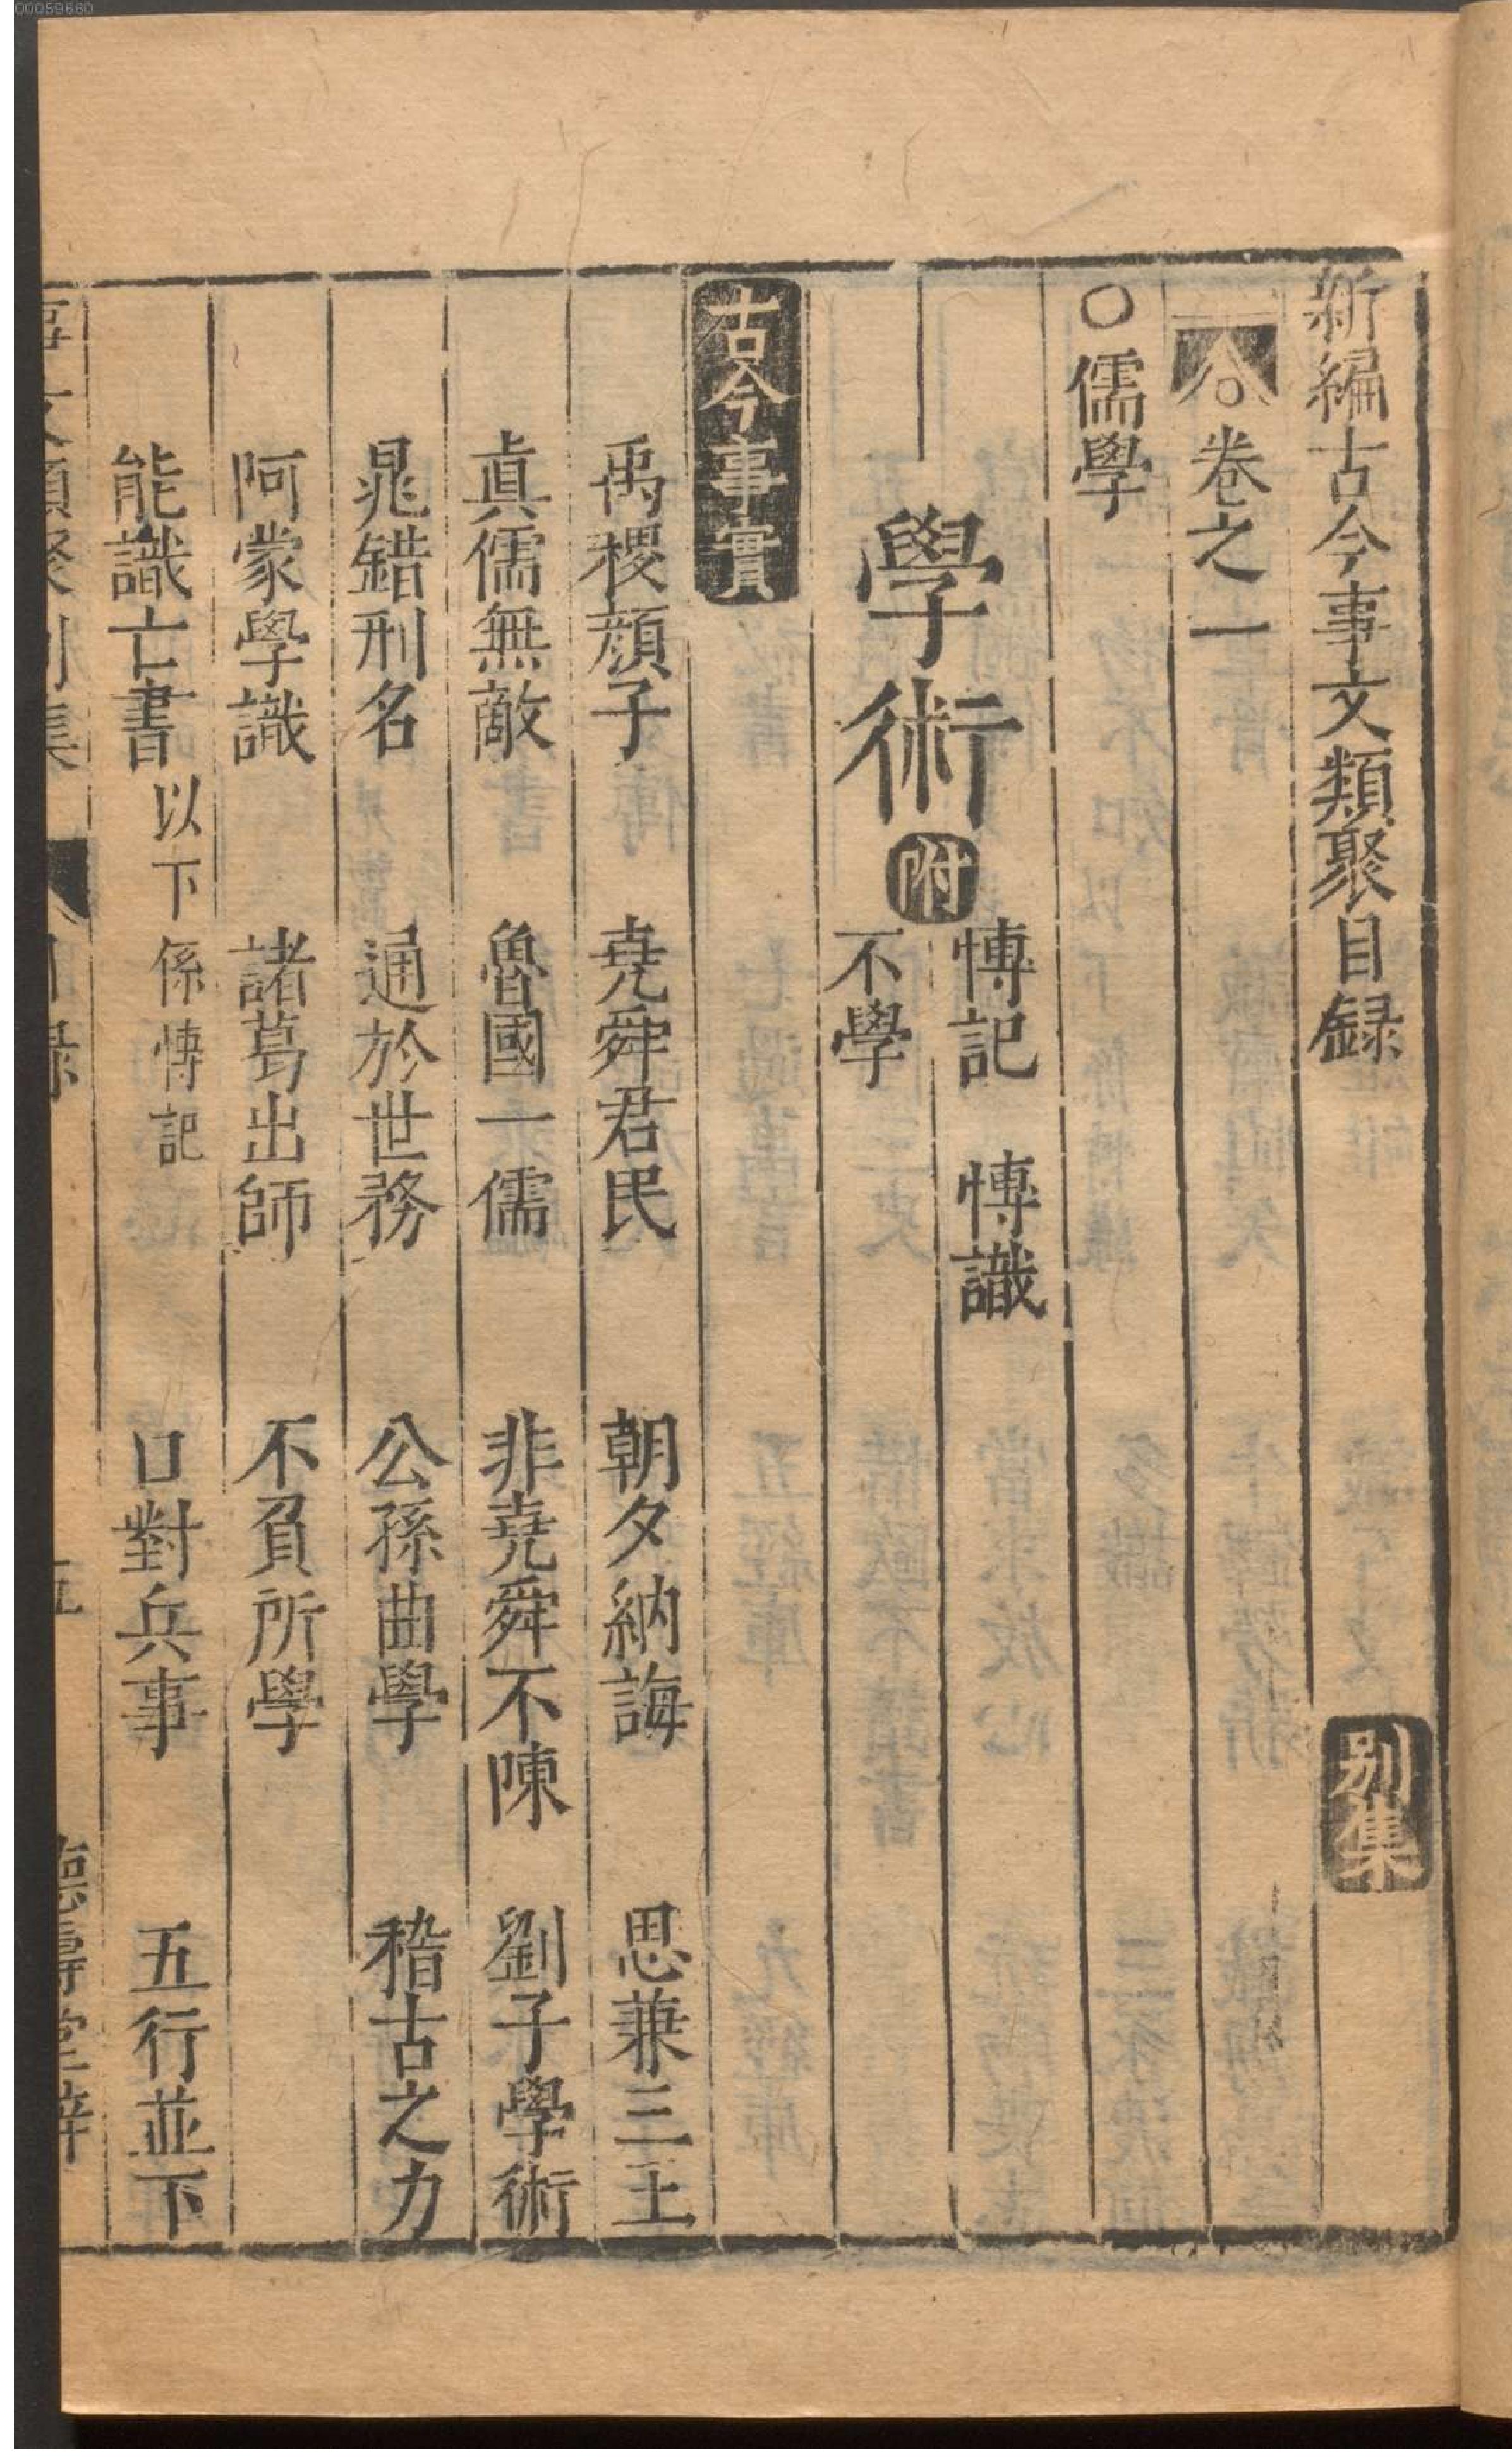 00059660
新編古今事文類聚目録 别集
卷之一
○儒學
學術 附 愽記 愽識
不學
古今事實
禹稷顔子 堯舜君民 朝夕納誨 思兼三王
真儒無敵 魯國一儒 非堯舜不陳 劉子學術
晁錯刑名 通於世務 公孫曲學 稽古之力
阿蒙學識 諸葛出師 不負所學
能識亡書 以下係愽記 口對兵事 五行並下